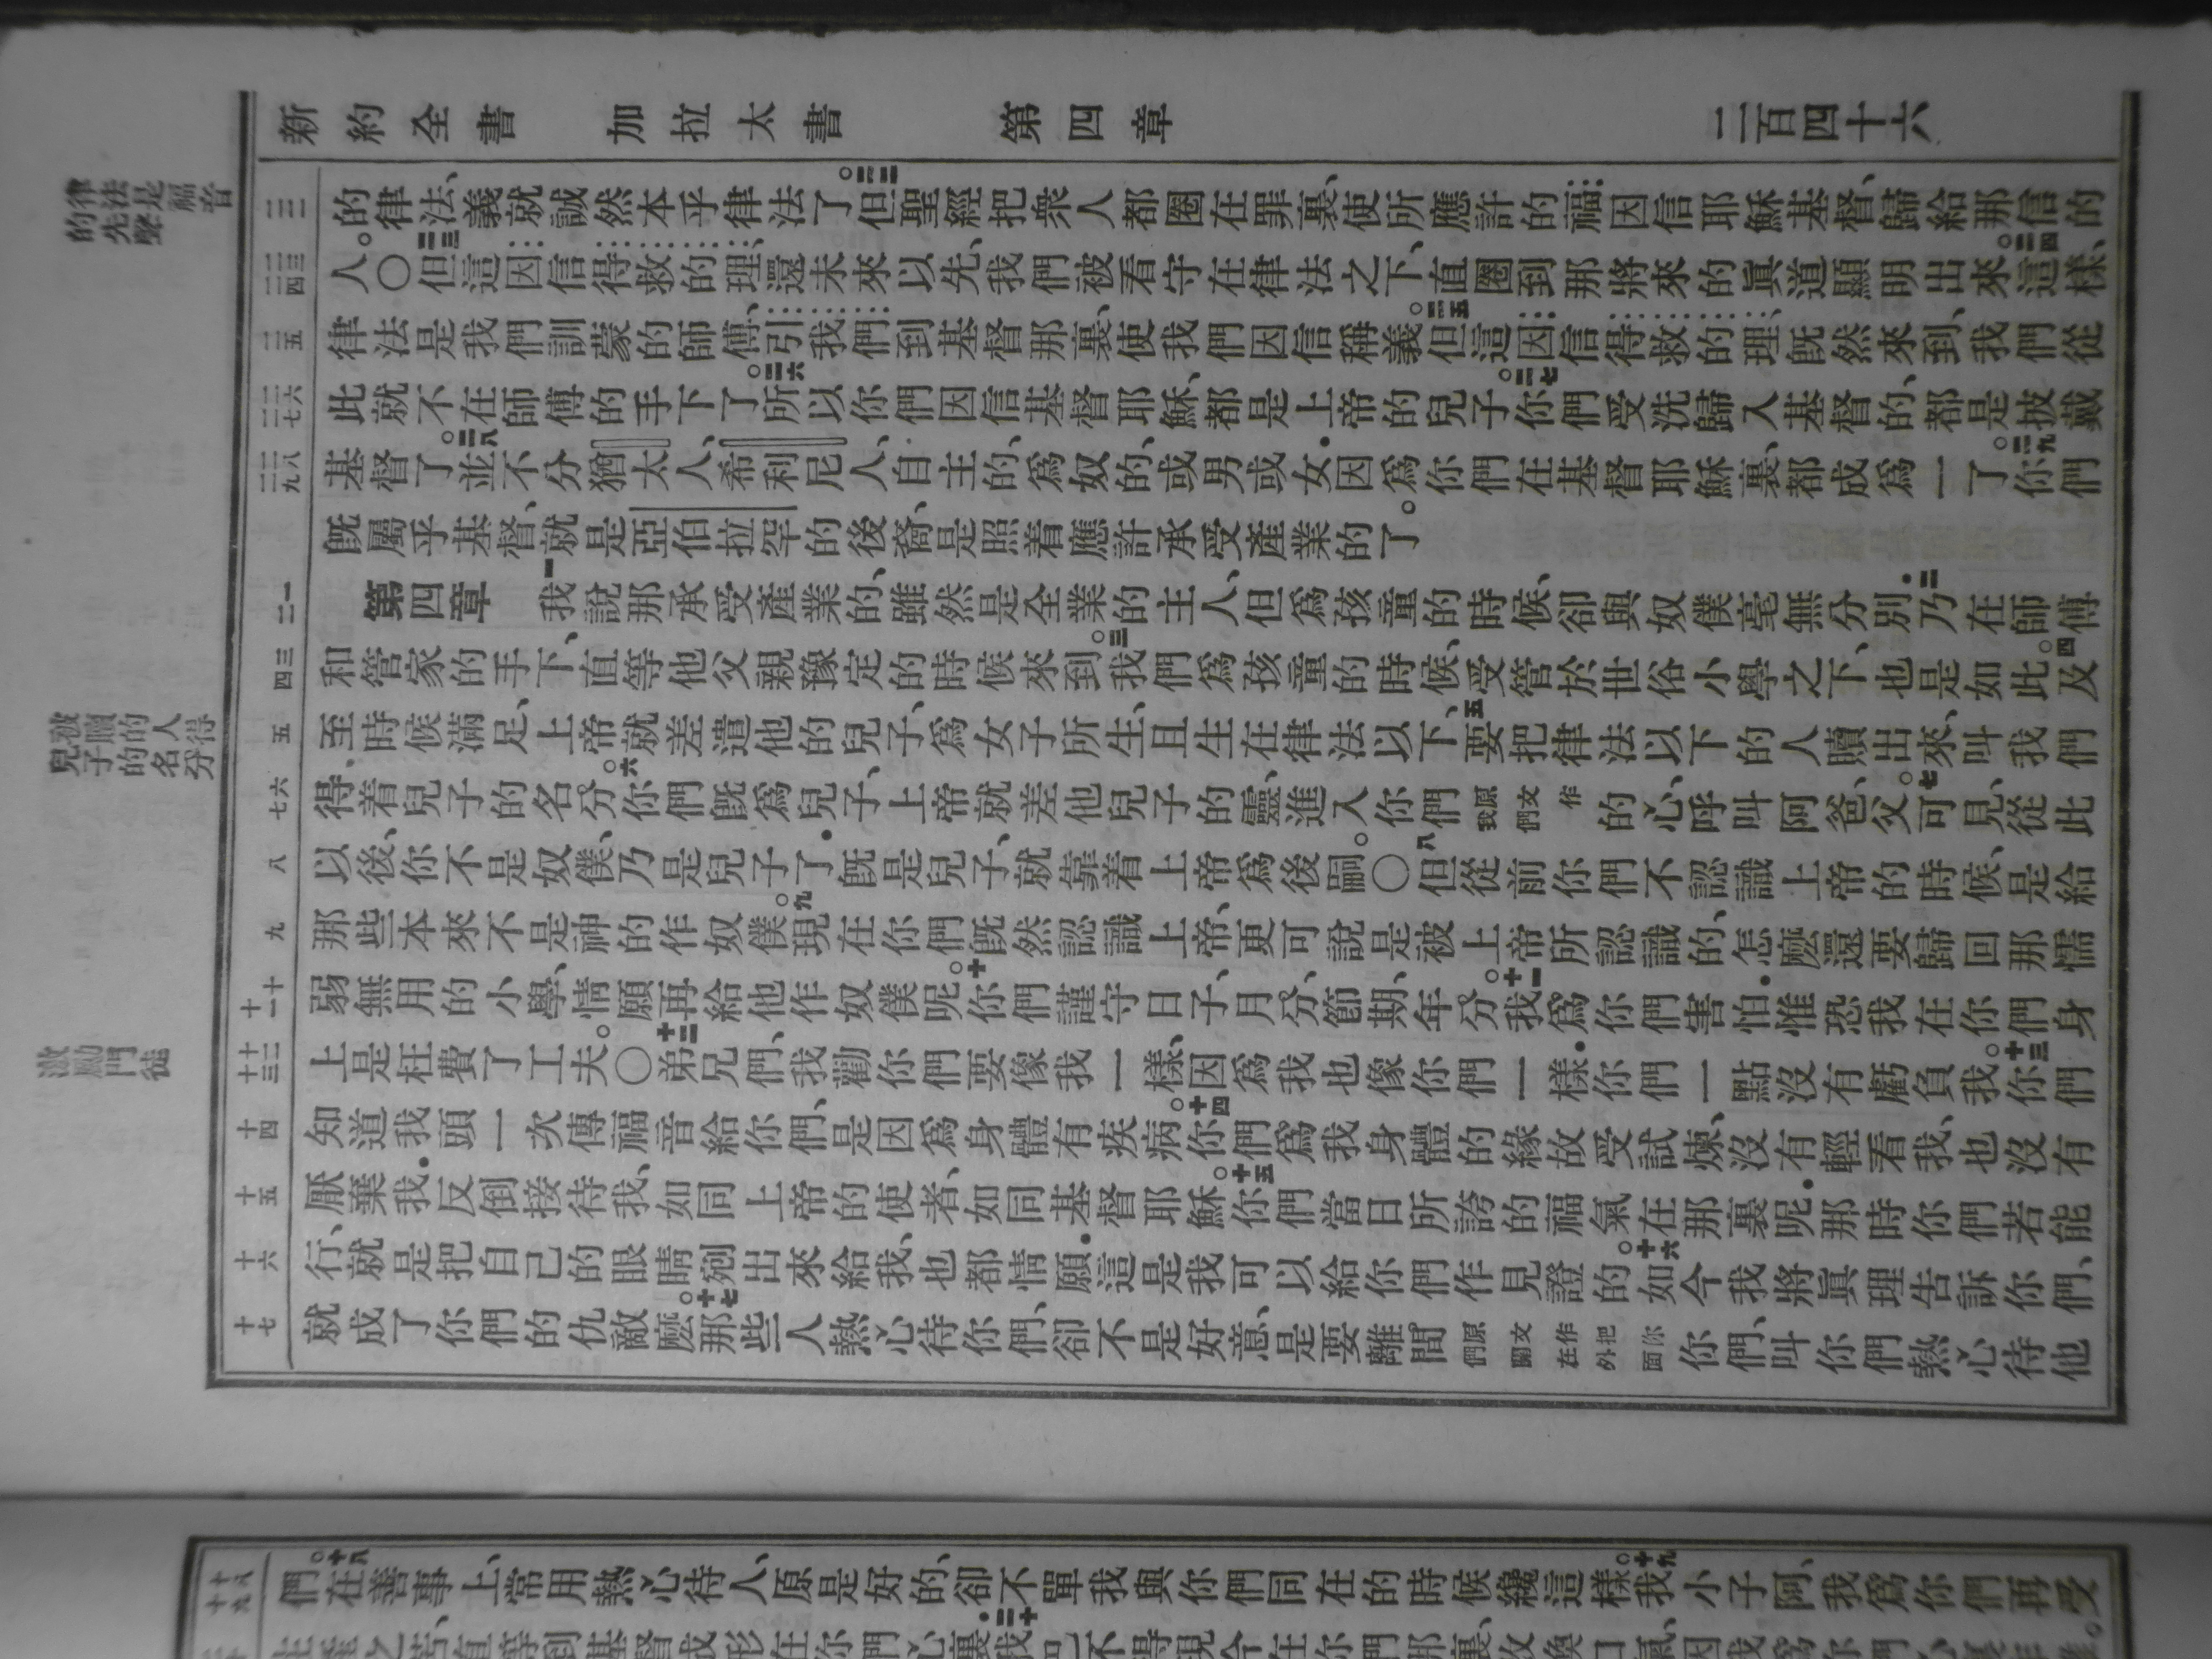 新約全書 加拉太書 第四章 二百四十六
的律法、義就誠然本乎律法了。二二但聖經把衆人都圈在罪裏、使所應許的福、因信耶穌基督、歸給那信的
人。〇二三但這因信得救的理、還未來以先、我們被看守在律法之下、直圈到那將來的眞道顯明出來。二四這樣、
律法是我們訓蒙的師傅、引我們到基督那裏、使我們因信稱義。二五但這因信得救的理、旣然來到、我們從
此就不在師傅的手下了。二六所以你們因信基督耶穌、都是上帝的兒子。二七你們受洗歸入基督的、都是披戴
基督了。二八並不分猶太人、希利尼人、自主的、爲奴的、或男或女・因爲你們在基督耶穌裏、都成爲一了。二九你們
旣屬乎基督、就是亞伯拉罕的後裔、是照着應許承受產業的了。
第四章 一我說那承受產業的、雖然是全業的主人、但爲孩童的時候、卻與奴僕毫無分別・二乃在師傅
和管家的手下、直等他父親豫定的時候來到。三我們爲孩童的時候、受管於世俗小學之下、也是如此。四及
至時候滿足、上帝就差遣他的兒子、爲女子所生、且生在律法以下、五要把律法以下的人贖出來、叫我們
得着兒子的名分。六你們旣爲兒子、上帝就差他兒子的靈、進入你們原文作我們的心、呼叫阿爸、父。七可見、從此
以後、你不是奴僕、乃是兒子了・旣是兒子、就靠着上帝爲後嗣。〇八但從前你們不認識上帝的時候、是給
那些本來不是神的作奴僕。九現在你們旣然認識上帝、更可說是被上帝所認識的、怎麽還要歸回那懦
弱無用的小學、情願再給他作奴僕呢。十你們謹守日子、月分、節期、年分。十一我爲你們害怕・惟恐我在你們身
上是枉費了工夫。〇十二弟兄們、我勸你們要像我一樣、因爲我也像你們一樣・你們一點沒有虧負我。十三你們
知道我頭一次傳福音給你們、是因爲身體有疾病。十四你們爲我身體的緣故受試煉、沒有輕看我、也沒有
厭棄我・反倒接待我、如同上帝的使者、如同基督耶穌。十五你們當日所誇的福氣在那裏呢・那時你們若能
行、就是把自己的眼睛剜出來給我、也都情願・這是我可以給你們作見證的。十六如今我將眞理告訴你們、
就成了你們的仇敵麽。十七那些人熱心待你們、卻不是好意、是要離間原文作把你們關在外面你們、叫你們熱心待他
律法是福音的先聲
被贖的人得兒子的名分
激勵門徒
三二
三三 三四
三五
三六 三七
三八 三九
一 二
三 四
五
六 七
八
九
十 十一
十二 十三
十四
十五
十六
十七
十八 十九
們。十八在善事上、常用熱心待人、原是好的、卻不單我與你們同在的時候纔這樣。十九我小子阿、我爲你們再受
生產之苦、直等到基督成形在你們心裏・二十我巴不得現今在你們那裏、改換口氣、因我爲你們心裏作難。